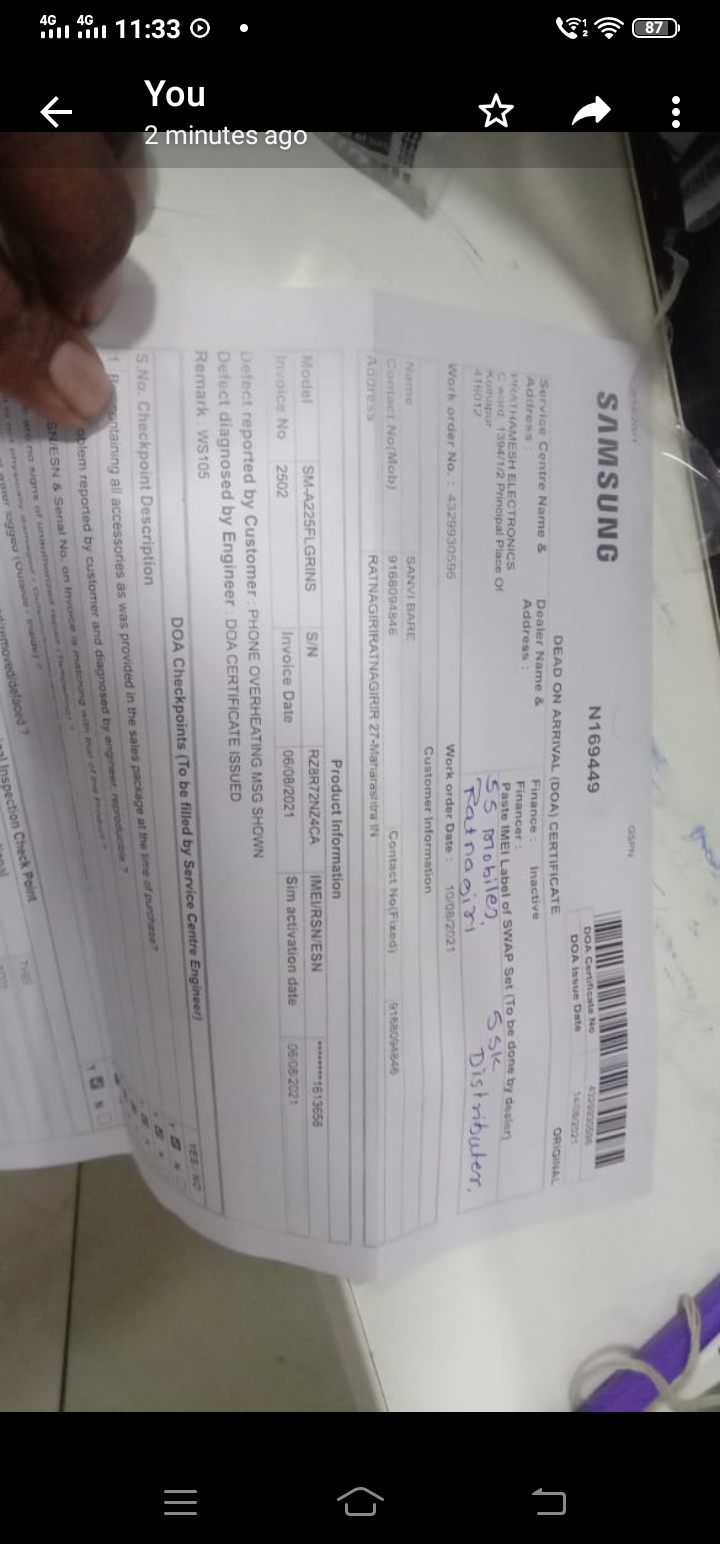 4G 4G 11:33 87
You
2 minutes ago
SAMSUNG
N169449
GSPN
DOA Certificate No 4329930596
DOA Issue Date 14/08/2021
DEAD ON ARRIVAL (DOA) CERTIFICATE
ORIGINAL
Service Centre Name & Address :
PRATHAMESH ELECTRONICS
C ward, 1394/1/2 Principal Place Of
Kolhapur
416012
Dealer Name & Address :
Finance : Inactive
Financer :
Paste IMEI Label of SWAP Set (To be done by dealer)
SS Mobiles,
Ratnagiri
SSK
Distributer,
Work order No. : 4329930596 Work order Date : 10/08/2021
Customer Information
Name SANVI BARE
Contact No(Mob) 9168094846 Contact No(Fixed) 9168094846
Address RATNAGIRIRATNAGIRIR 27-Maharashtra IN
Product Information
Model SM-A225FLGRINS S/N RZ8R72NZ4CA IMEI/RSN/ESN ********1613658
Invoice No 2502 Invoice Date 06/08/2021 Sim activation date 06/08/2021
Defect reported by Customer : PHONE OVERHEATING MSG SHOWN
Defect diagnosed by Engineer : DOA CERTIFICATE ISSUED
Remark : WS105
DOA Checkpoints (To be filled by Service Centre Engineer)
S.No. Checkpoint Description YES NO
1 containing all accessories as was provided in the sales package at the time of purchase? Y N
reported by customer and diagnosed by engineer, reproducible ?
SN/ESN & Serial No. on Invoice is matching with that of the Product ?
no signs of unauthorized
removed/defaced ?
Inspection Check Point